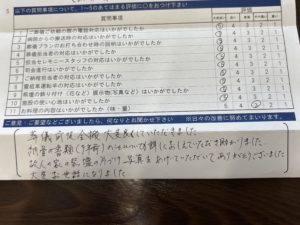 以下の質問事項について、1〜5のあてはまる評価に○をおつけ下さい
質問事項 評価
1 ご葬儀ご依頼の際の電話対応はいかがでしたか 5 4 3 2 1
2 病院からの搬送時の対応はいかがでしたか 5 4 3 2 1
3 葬儀プランのお打ち合わせ時の説明はいかがでしたか 5 4 3 2 1
4 葬儀担当者の対応はいかがでしたか 5 4 3 2 1
5 担当セレモニースタッフの対応はいかがでしたか 5 4 3 2 1
6 司会進行はいかがでしたか 5 4 3 2 1
7 ご納棺担当者の対応はいかがでしたか 5 4 3 2 1
8 霊柩車運転手の対応はいかがでしたか 5 4 3 2 1
9 祭壇の飾り付け（花など）展示物（写真など）はいかがでしたか 5 4 3 2 1
10 施設の使い心地はいかがでしたか 5 4 3 2 1
11 お料理の内容はいかがでしたか（味・量） 5 4 3 2 1
ご意見・ご要望などございましたら、何なりとお聞かせ下さい ※日々の改善に努めてまいります。
葬儀前後全般大変良くしていただきました
の書類（手続）のについても詳しくおしえていただきお助かりました
故人の家の祭壇の片づけ、写真をあげていただいてありがとうございました
大変お世話になりました